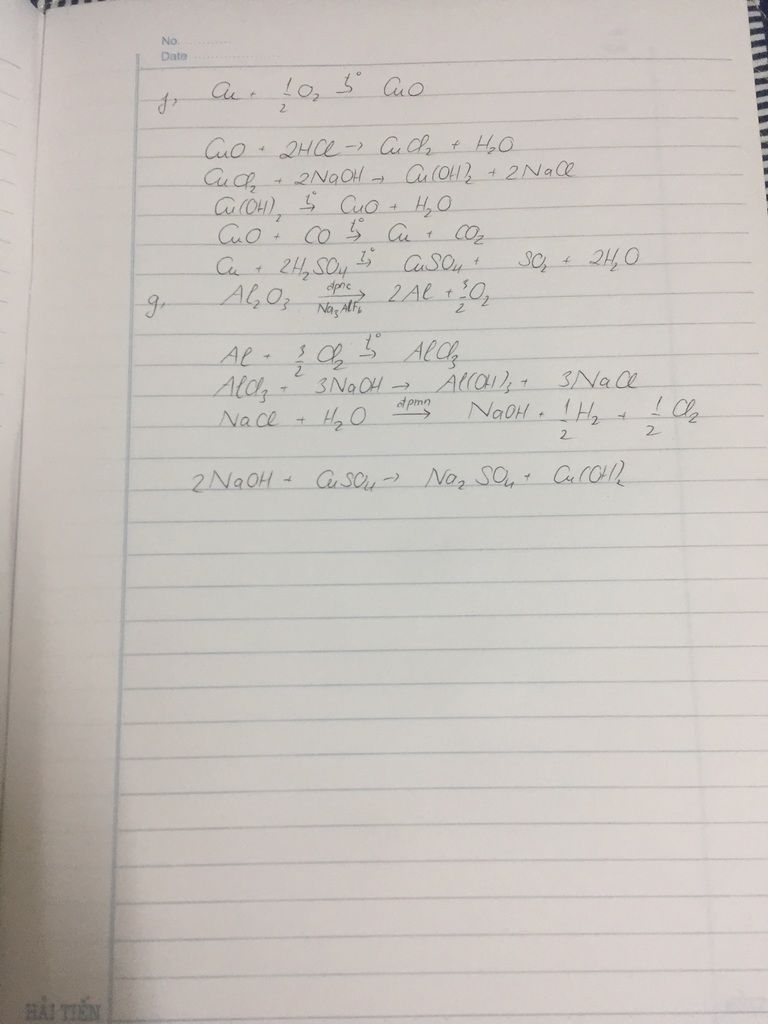 No. ............
Date ......................
f, Cu + 1/2 O₂ t°→ CuO
CuO + 2HCl → CuCl₂ + H₂O
CuCl₂ + 2NaOH → Cu(OH)₂ + 2NaCl
Cu(OH)₂ t°→ CuO + H₂O
CuO + CO t°→ Cu + CO₂
Cu + 2H₂SO₄ t°→ CuSO₄ + SO₂ + 2H₂O
g, Al₂O₃ dpnc→ Na₃AlF₆ 2Al + 3/2 O₂
Al + 3/2 Cl₂ t°→ AlCl₃
AlCl₃ + 3NaOH → Al(OH)₃ + 3NaCl
NaCl + H₂O dpmn→ NaOH + 1/2 H₂ + 1/2 Cl₂
2NaOH + CuSO₄ → Na₂SO₄ + Cu(OH)₂
HẢI TIẾN